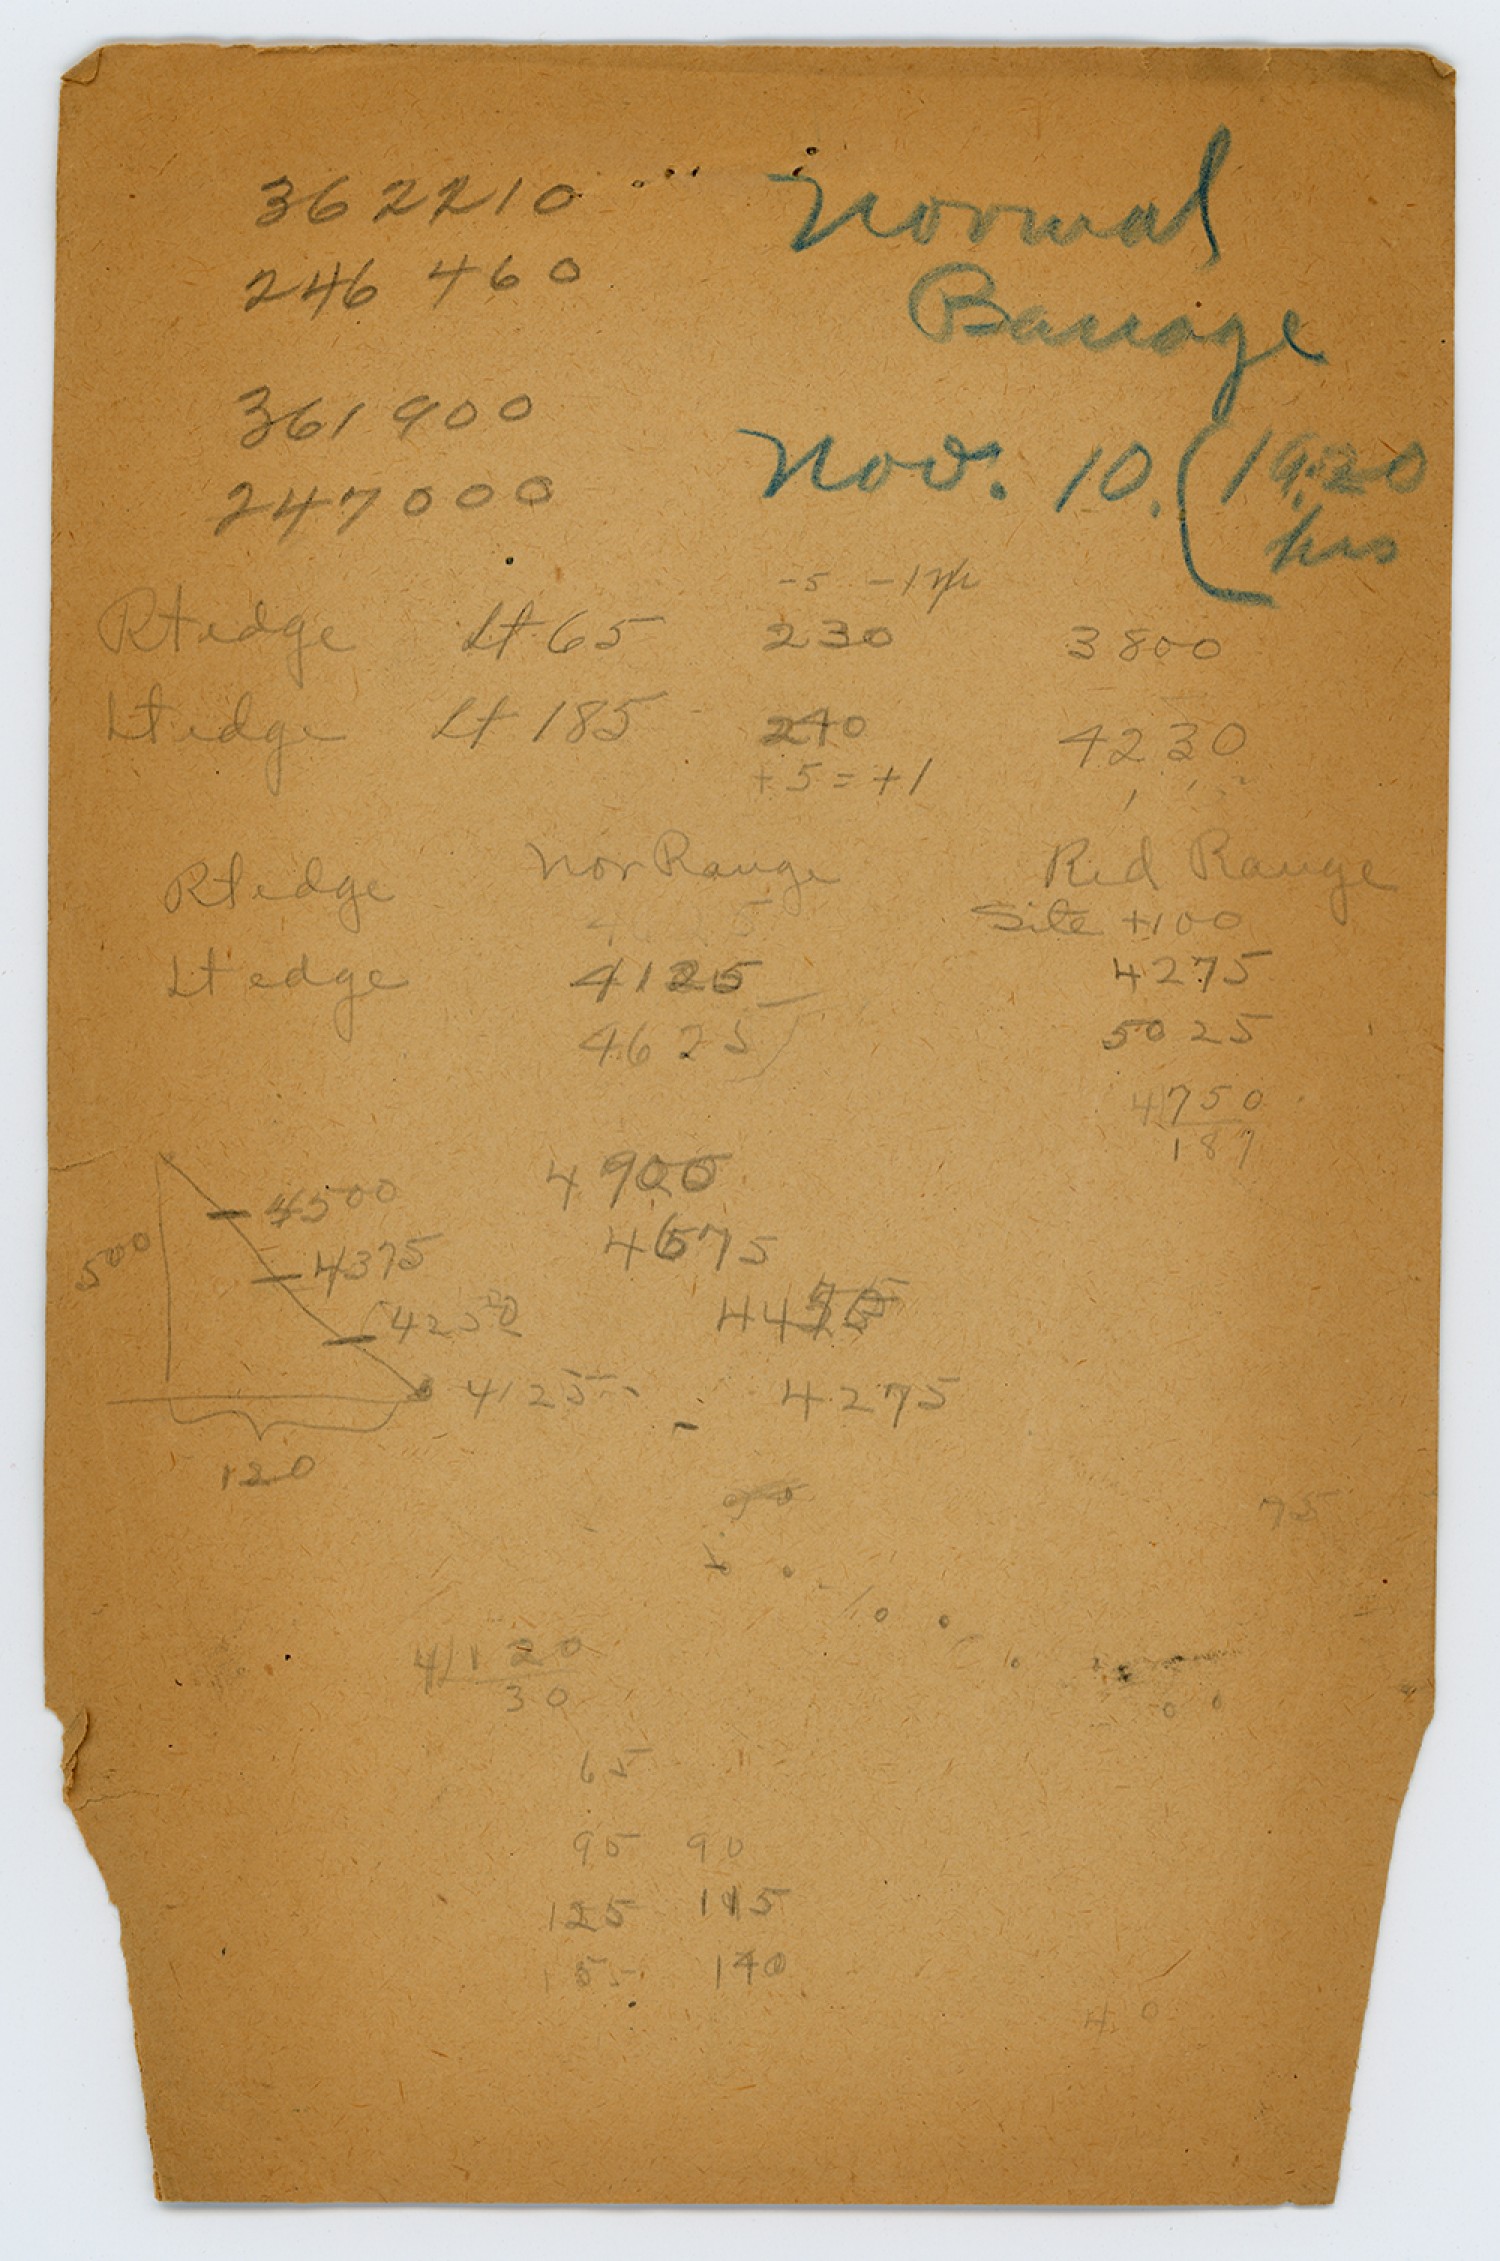 362210
246 460
Normal
Barrage
361 900
247000
Nov. 10. (19:20
hrs
-5 -1
Rt edge Lt 65 230 3800
Lt edge Lt 185 240 4230
+5 = +1
Rt edge Nor Range Red Range
Site +100
Lt edge 4125 4275
4625 5025
4)750
187
4900
4500
4675
500
4375
4250
4125 - 4275
120
75
4)120
30
65
95 90
125 115
155 140
40